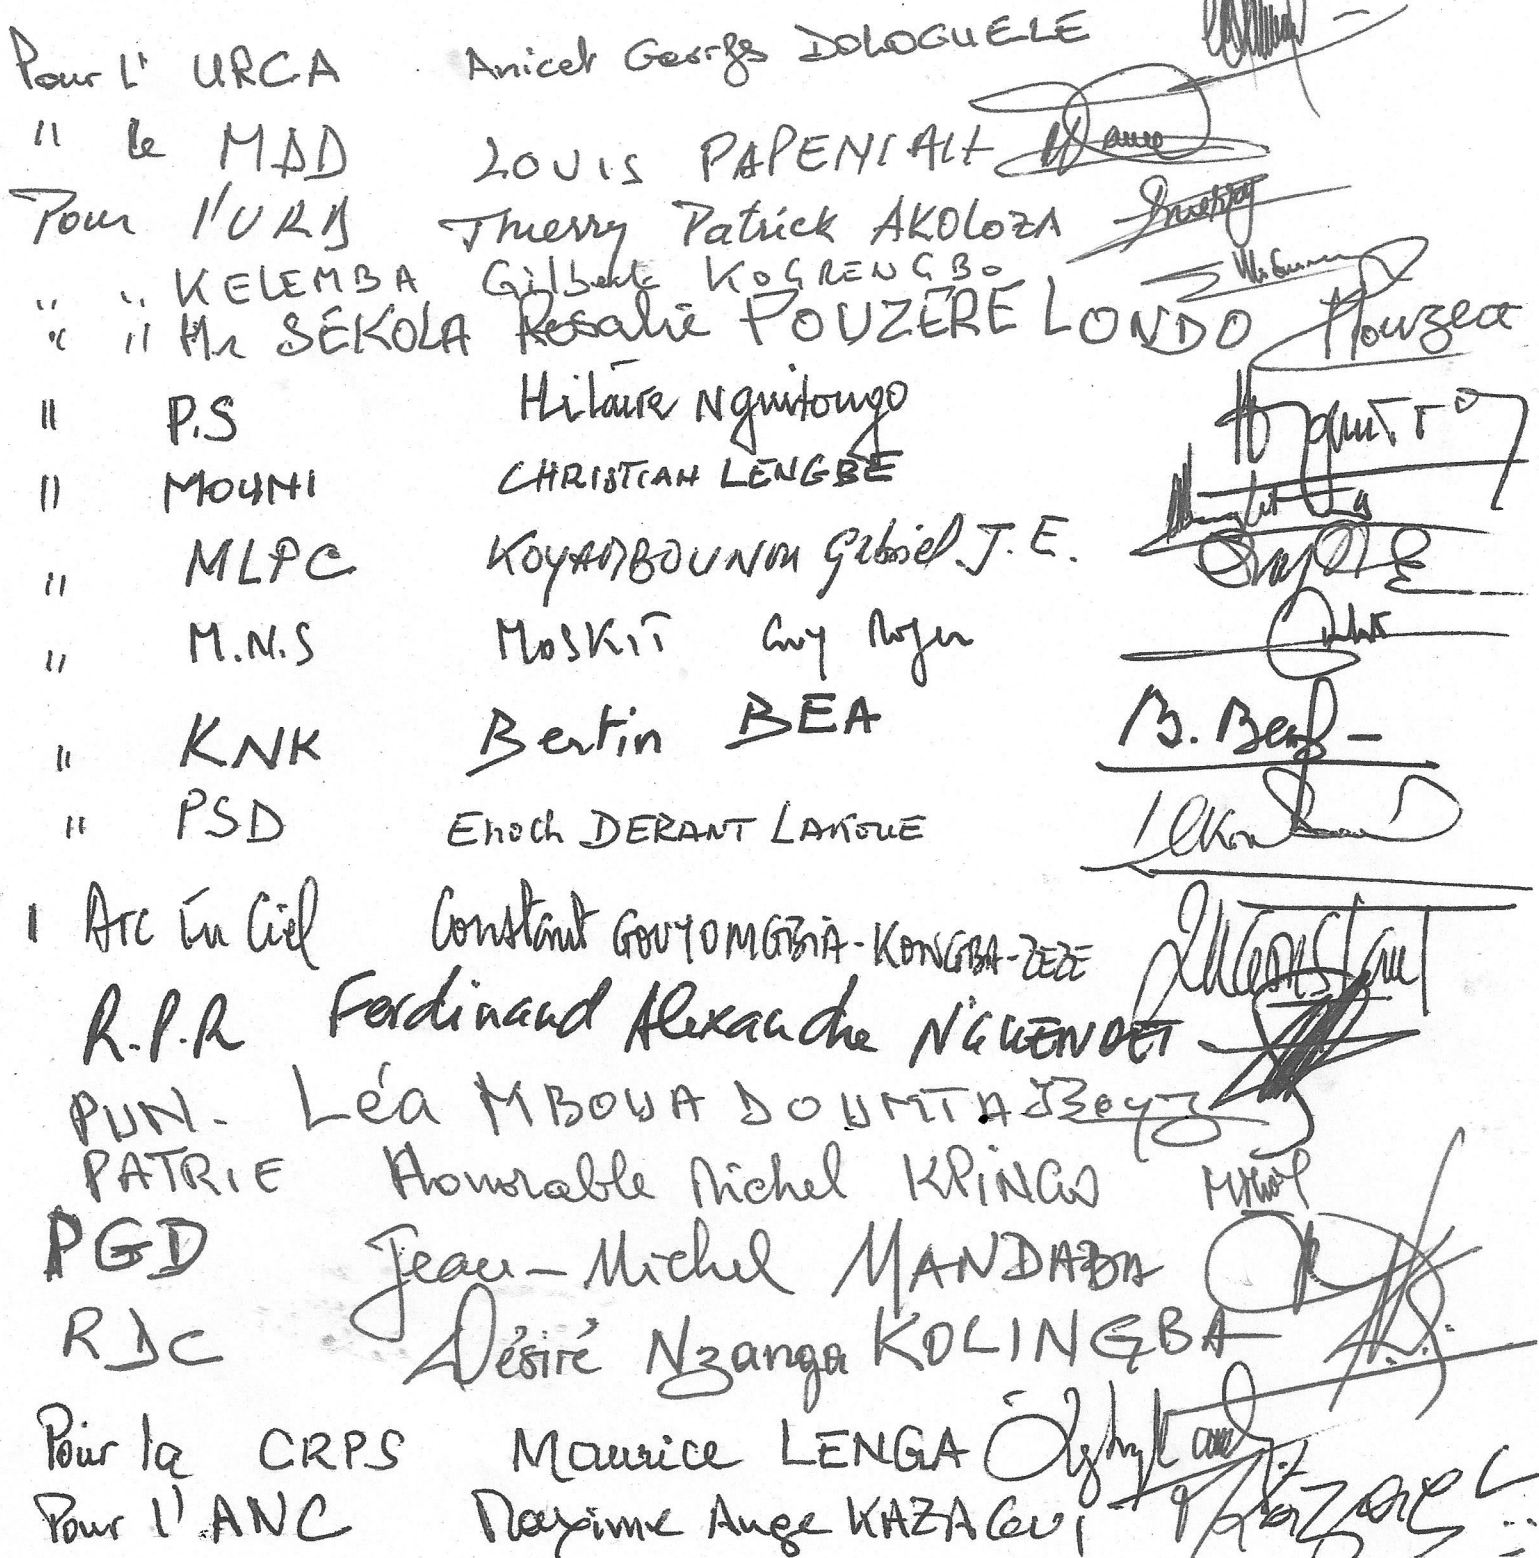 Pour L' URCA Anicet Georges DOLOGUELE
" le MDD LOUIS PAPENIAH
Pour l'URD Thierry Patrick AKOLOZA
" " KELEMBA Gilbert KOGRENGBO
" " Mr SÉKOLA Rosalie POUZÈRE LONDO Pouzere
" P.S Hilaire Nguitongo
" MOUNI CHRISTIAN LENGBE
" MLPC KOYAMBOUNOU Gabriel J. E.
" M.N.S MOSKIT Guy Roger
" KNK Bertin BEA B. Bea
" PSD Enoch DERANT LAKOUE
" Arc En Ciel Constant GOUYOMGBIA-KONGBA-ZEZE Constant
R.P.R Ferdinand Alexandre N'GUENDET
PUN. Léa MBOUA DOUMTA
PATRIE Honorable Michel KPINGO
PGD Jean-Michel MANDABA
RDC Désiré Nzanga KOLINGBA
Pour la CRPS Maurice LENGA
Pour l'ANC Maxime Ange KAZAGUI